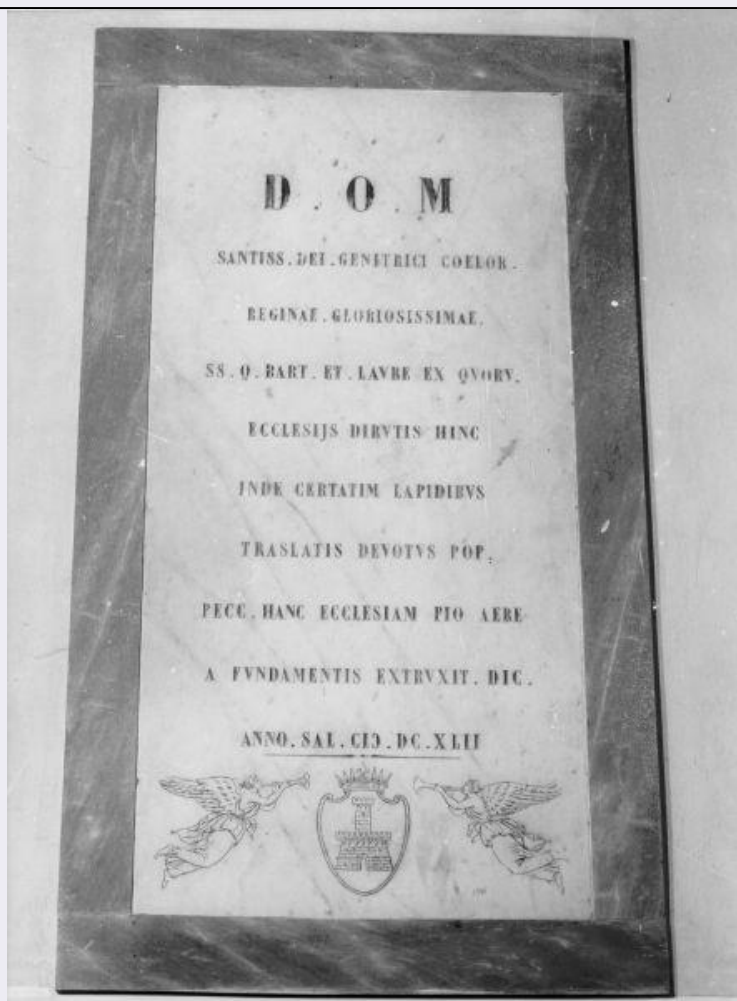 D . O . M
SANTISS . DEI . GENITRICI COELOR .
REGINAE . GLORIOSISSIMAE .
SS . Q . BART . ET . LAVRE EX QVORV .
ECCLESIJS DIRVTIS HINC
INDE CERTATIM LAPIDIBVS
TRASLATIS DEVOTVS POP :
PECC . HANC ECCLESIAM PIO AERE
A FVNDAMENTIS EXTRVXIT . DIC .
ANNO . SAL . CIƆ . DC . XLII